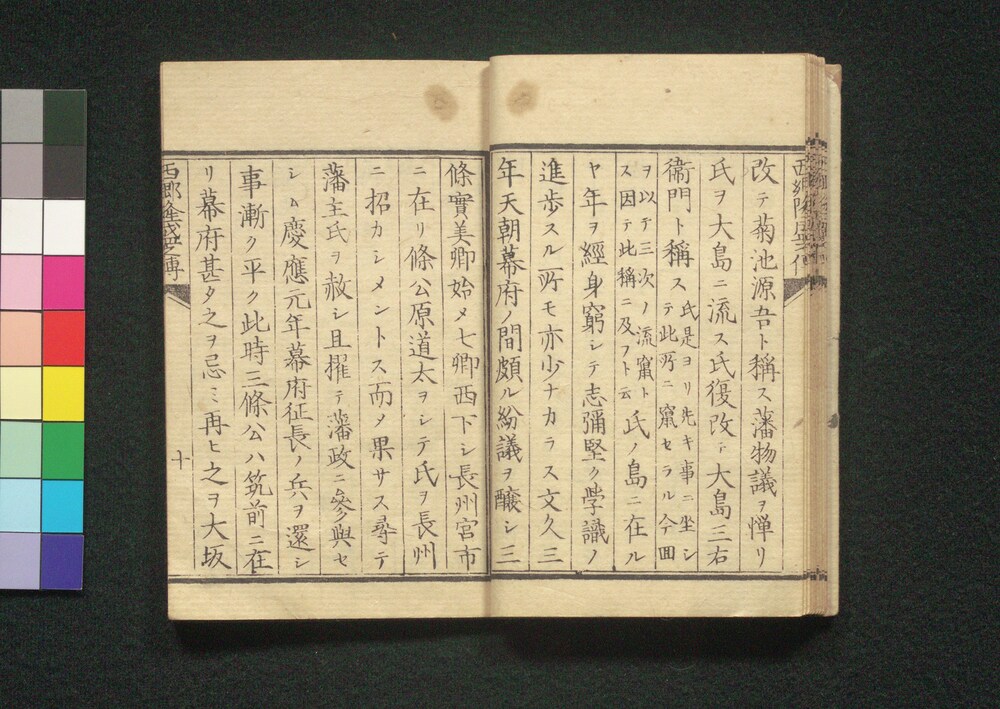 改テ菊池源吾ト稱ス藩物議ヲ憚リ
氏ヲ大島ニ流ス氏復改テ大島三右
衛門ト稱ス氏是ヨリ先キ事ニ坐シ
テ此所ニ竄セラル今回
ヲ以テ三次ノ流竄ト
ス因テ此稱ニ及フト云氏ノ島ニ在ル
ヤ年ヲ經身窮シテ志彌堅ク學識ノ
進歩スル所モ亦少ナカラス文久三
年天朝幕府ノ間頗ル紛議ヲ釀シ三
條實美卿始メ七卿西下シ長州宮市
ニ在リ條公原道太ヲシテ氏ヲ長州
ニ招カシメントス而メ果サス尋テ
藩主氏ヲ赦シ且擢テ藩政ニ參與セ
シム慶應元年幕府征長ノ兵ヲ還シ
事漸ク平ク此時三條公ハ筑前ニ在
リ幕府甚タ之ヲ忌ミ再ヒ之ヲ大坂
西郷隆盛之傳
十